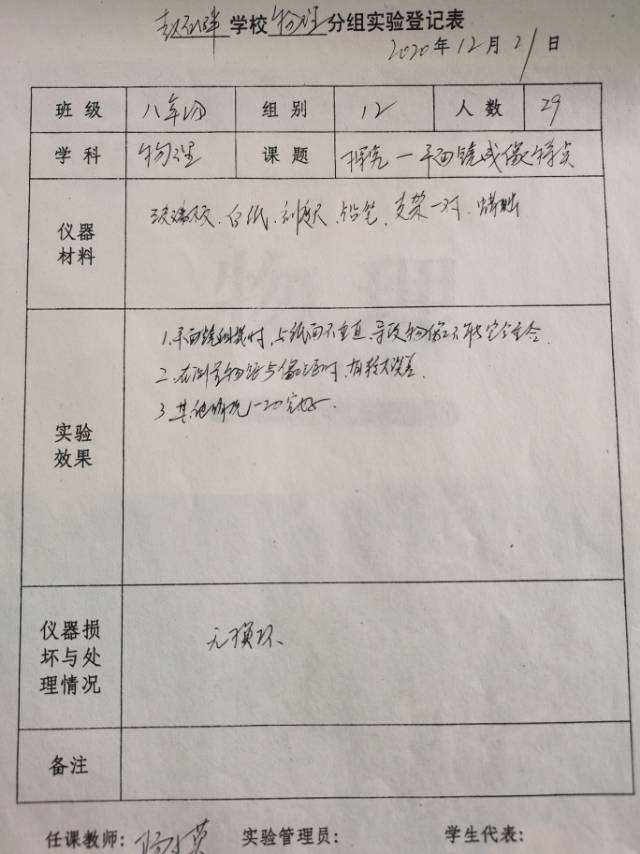 学校物理分组实验登记表
2020年12月21日
班级 八年级 组别 12 人数 29
学科 物理 课题 探究—平面镜成像特点
仪器材料 玻璃板、白纸、刻度尺、铅笔、支架一对、蜡烛
实验效果
1.平面镜组装时,与纸面不垂直,导致物像不能完全重合.
2.在测量物距与像距时,有较大误差.
3 其他情况一切完好.
仪器损坏与处理情况 无损坏、
备注
任课教师: 实验管理员: 学生代表: